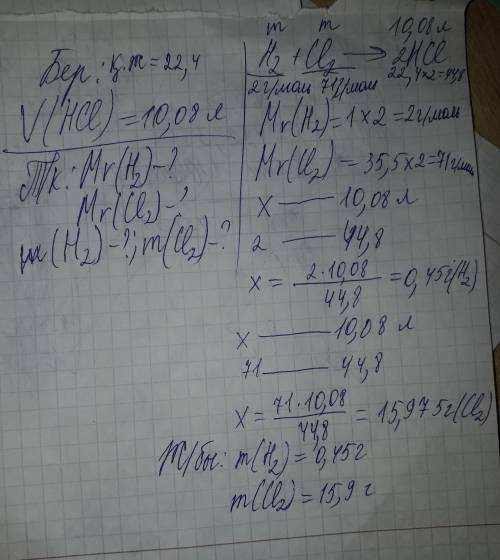 Бер: қ.т = 22,4
V(HCl) = 10,08 л
Тк: Mr(H₂) - ?
Mr(Cl₂) - ?
m(H₂) - ?; m(Cl₂) - ?
m m 10,08 л
H₂ + Cl₂ → 2HCl
2г/моль 71г/моль 22,4×2=44,8
Mr(H₂) = 1×2 = 2г/моль
Mr(Cl₂) = 35,5×2=71г/моль
x — 10,08 л
2 — 44,8
x = 2·10,08 / 44,8 = 0,45г(H₂)
x — 10,08 л
71 — 44,8
x = 71·10,08 / 44,8 = 15,975г(Cl₂)
Ж/бы: m(H₂) = 0,45г
m(Cl₂) = 15,9 г